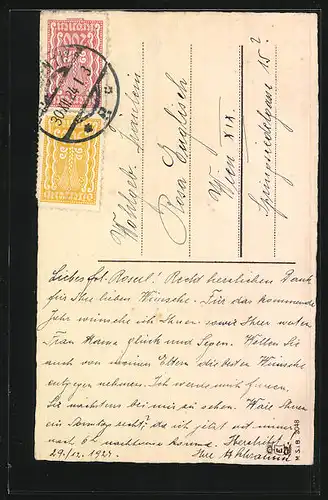 Wohlgeb. Fräulein
Rosa Englisch
Wien XIX.
Springsiedelgasse 15
Liebes Frl. Roserl! Recht herzlichen Dank
für Ihre lieben Wünsche. Für das kommende
Jahr wünsche ich Ihnen sowie Ihrer werten
Frau Mama Glück und Segen. Wollen Sie
auch von meinen Eltern die besten Wünsche
entgegen nehmen. Ich werde mich freuen
Sie nächstens bei mir zu sehen. Wäre Ihnen
ein Sonntag recht, da ich jetzt oft immer
nach 6h nachhause komme. Herzlichst
29./12. 1924. Ihre
M.S.i.B. 2048
200